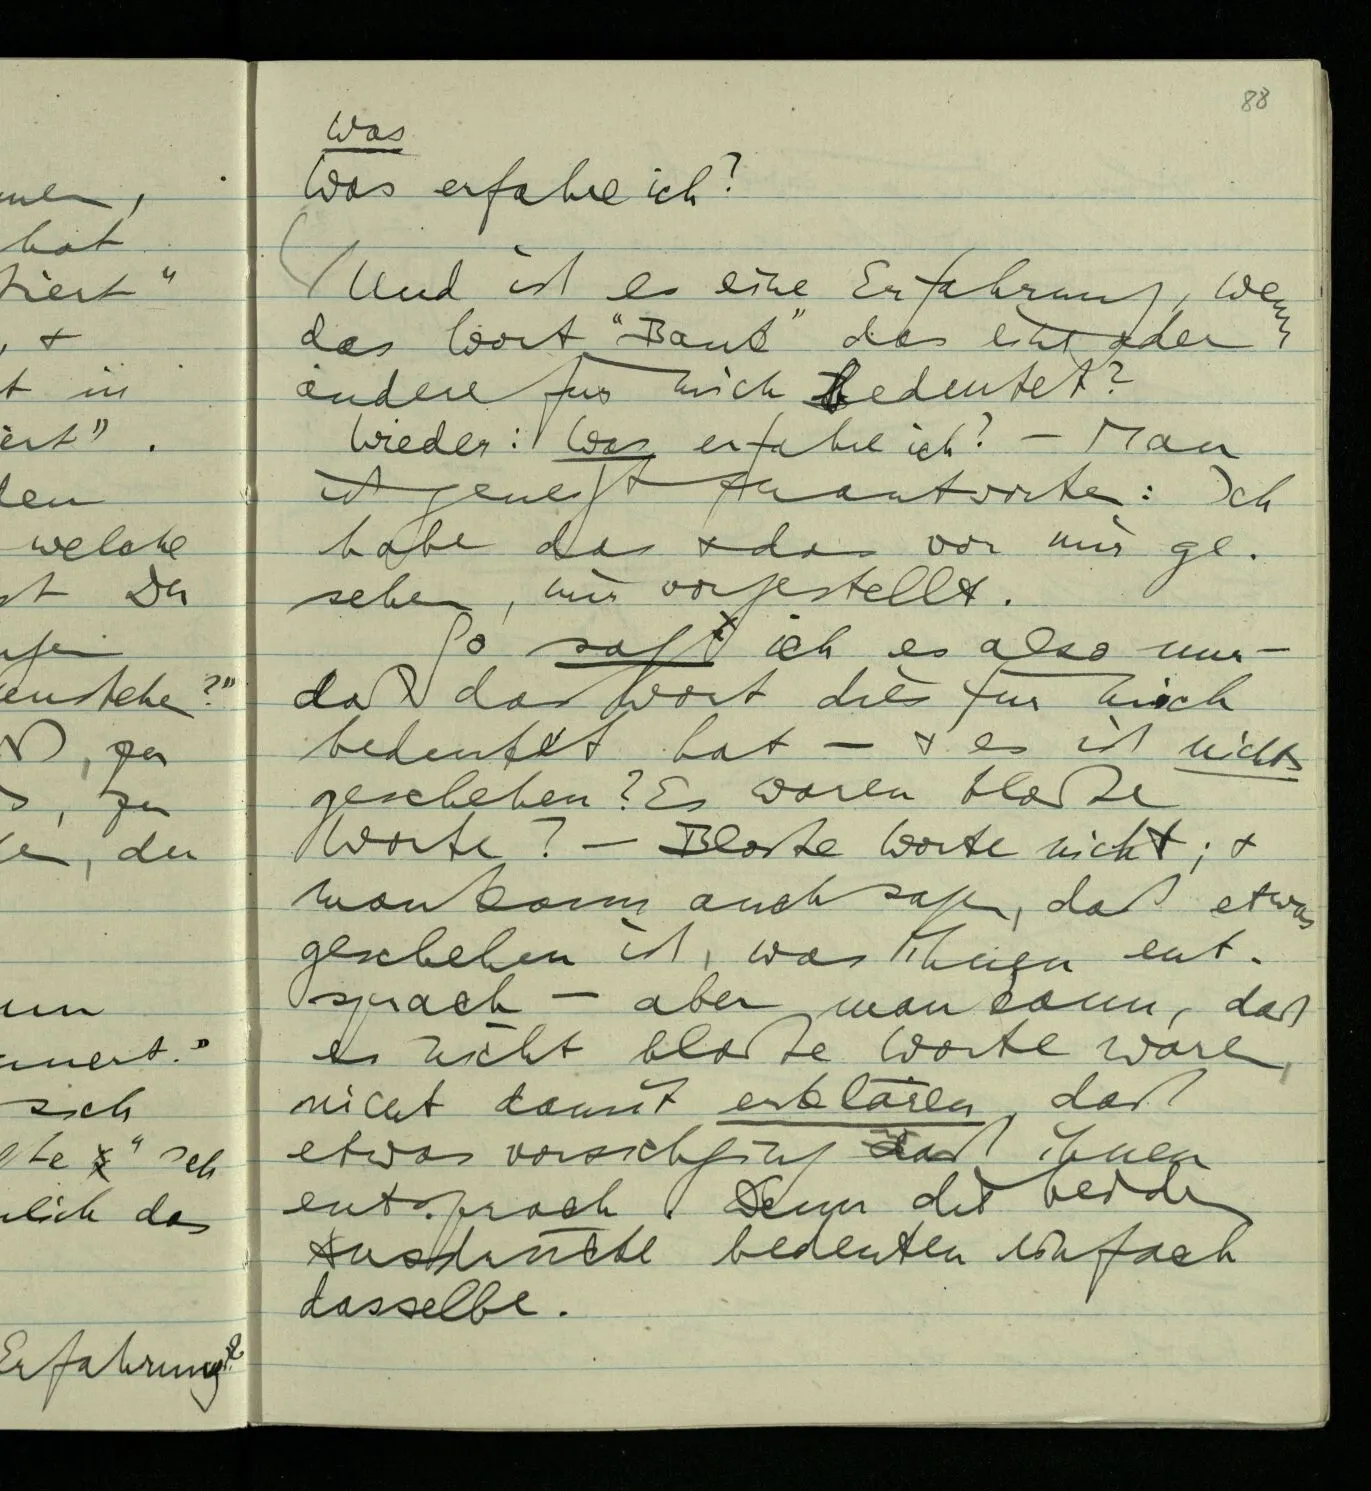 88
Was
Was erfahre ich?
Und ist es eine Erfahrung, wenn
das Wort "Bank" das eine oder
andere für mich bedeutet?
Wieder: Was erfahre ich? – Man
ist geneigt zu antworten: Ich
habe das & das vor mir ge-
sehen, mir vorgestellt.
So sagt ich es also nur –
daß das Wort dies für mich
bedeutet hat – & es ist nichts
geschehen? Es waren bloße
Worte? – Bloße Worte nicht; &
man kann auch sagen, daß etwas
geschehen ist, was ihnen ent-
sprach – aber man kann, daß
es nicht bloße Worte waren,
nicht damit erklären, daß
etwas vorsichging das ihnen
entsprach. Denn die beiden
Ausdrücke bedeuten einfach
dasselbe.
hat
& 
welche
Du
, zu
, zu
, der
sich
Ich
das
Erfahrung?